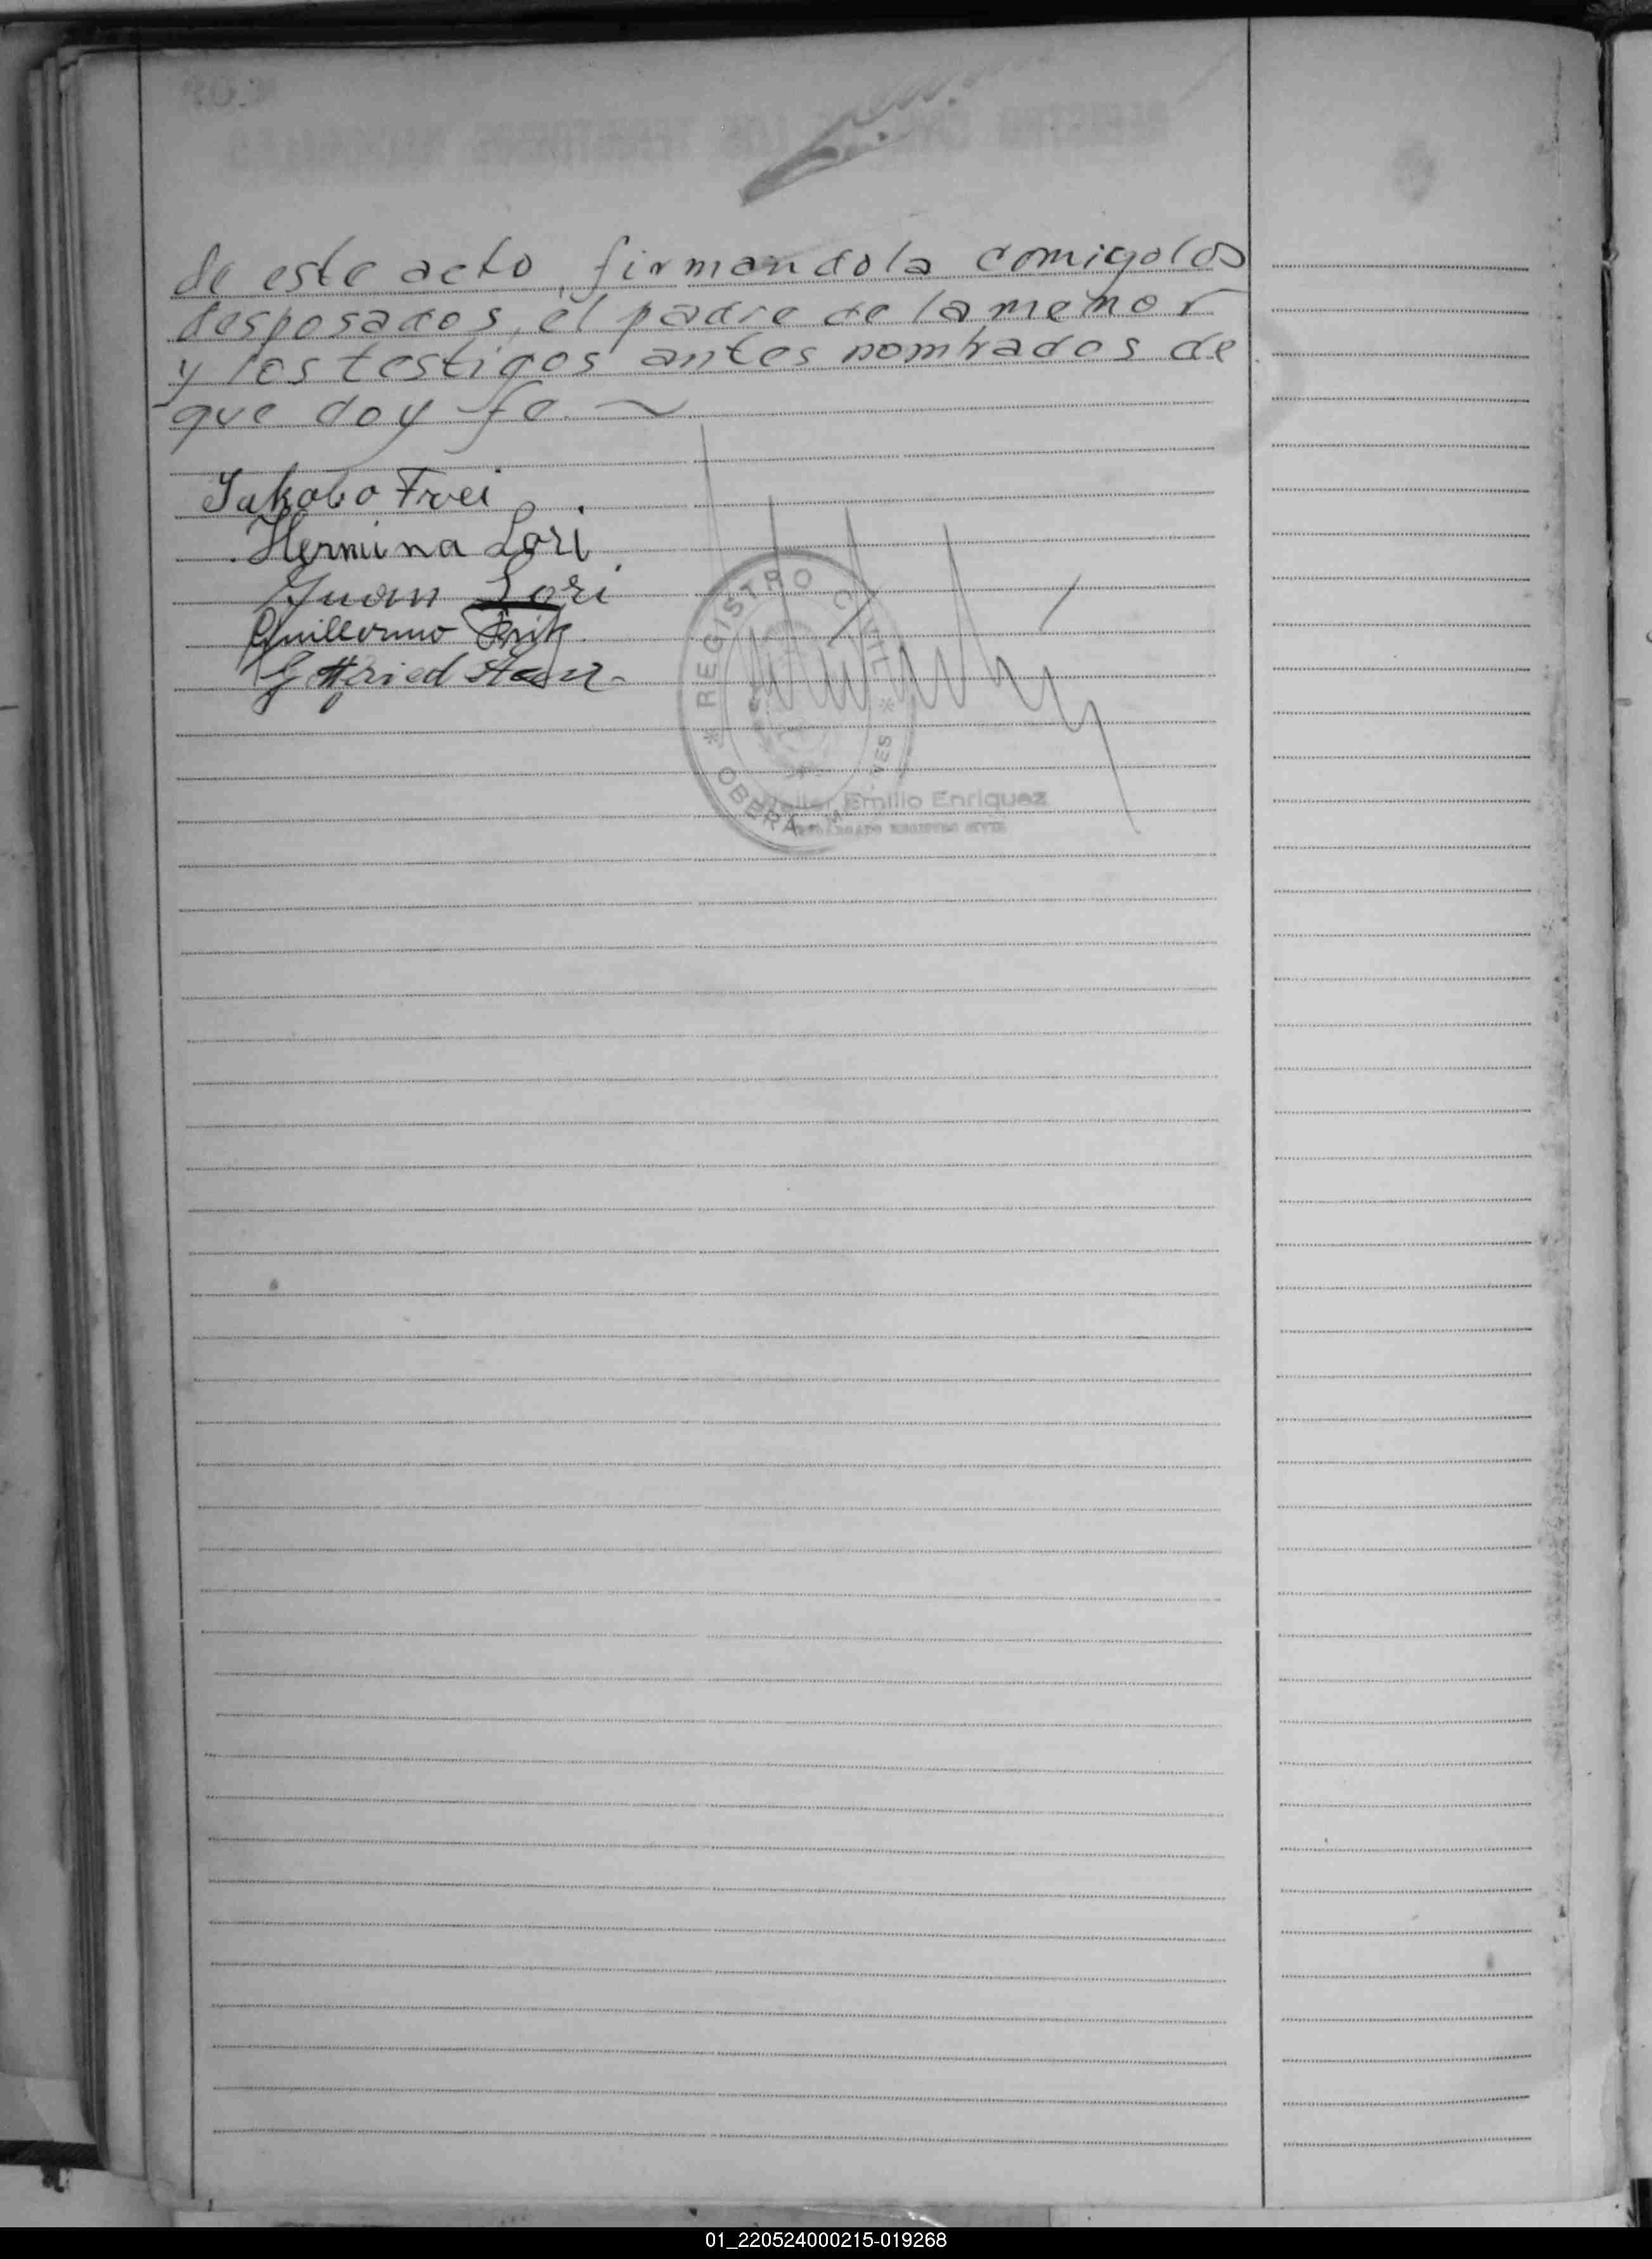 de este acto, firmandola comigo los
desposados, el padre de la menor
y los testigos antes nombrados de
que doy fe.
Jakobo Frei
Hermina Lori
Juan Lori
Guillermo
Gottfried
REGISTRO CIVIL
OBERA
Emilio Enriquez
ENCARGADO REGISTRO CIVIL
01_220524000215-019268